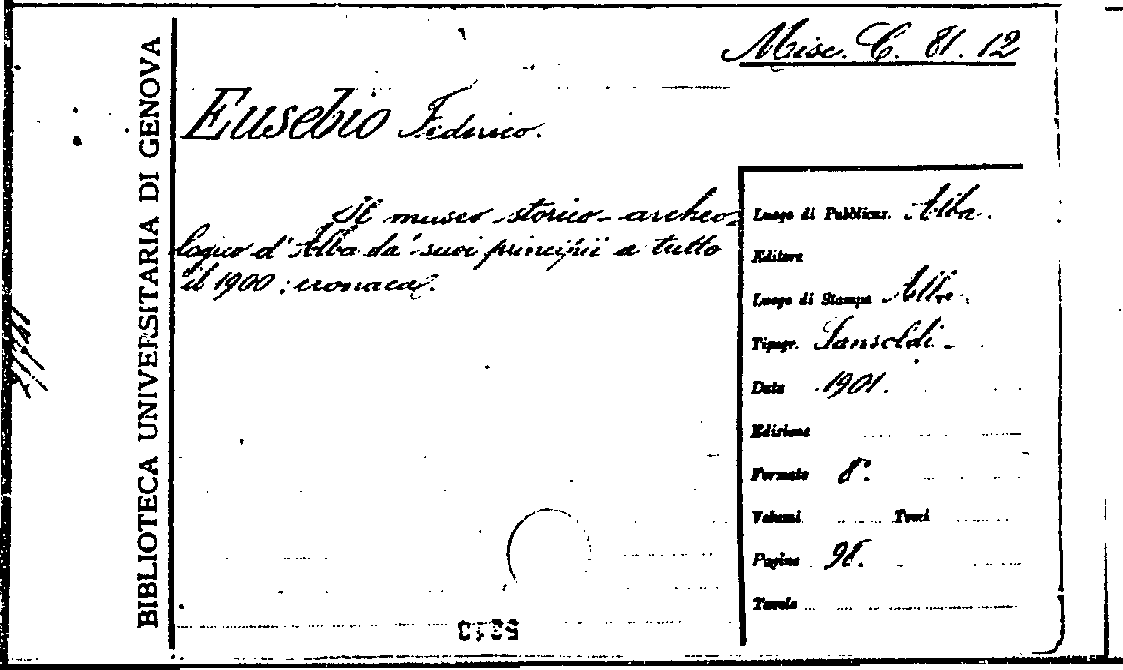 Misc. C. 81. 12
BIBLIOTECA UNIVERSITARIA DI GENOVA
Eusebio Federico.
Il museo storico-archeo-
logico d'Alba da' suoi principii a tutto
il 1900: cronaca.
Luogo di Pubblicaz. Alba.
Editore
Luogo di Stampa Alba.
Tipogr. Sansoldi.
Data 1901.
Edizione
Formato 8°.
Volumi Tomi
Pagine 98.
Tavole